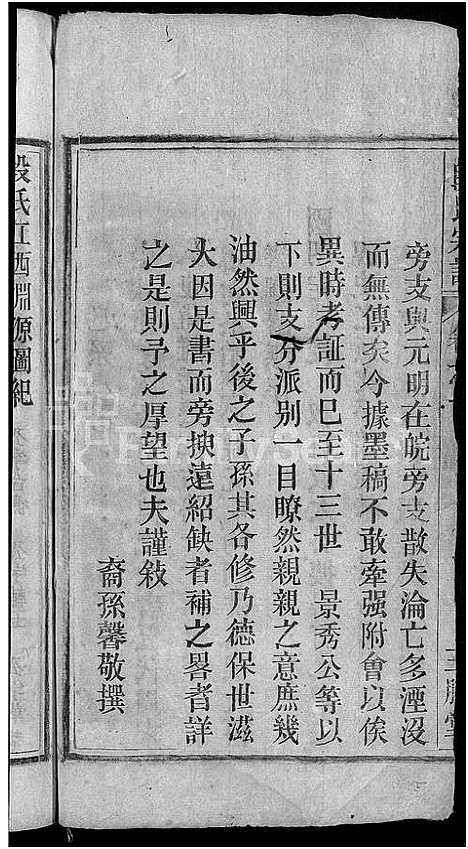 旁支與元明在皖旁支散失淪亡多湮沒
而無傳矣今據墨稿不敢牽强附會以俟
異時考証而已至十三世　景秀公等以
下則支分派别一目瞭然親親之意庶幾
油然興乎後之子孫其各修乃德保世滋
大因是書而旁搜遠紹缺者補之畧者詳
之是則予之厚望也夫謹敍
裔孫馨敬撰
段氏江西淵源圖紀